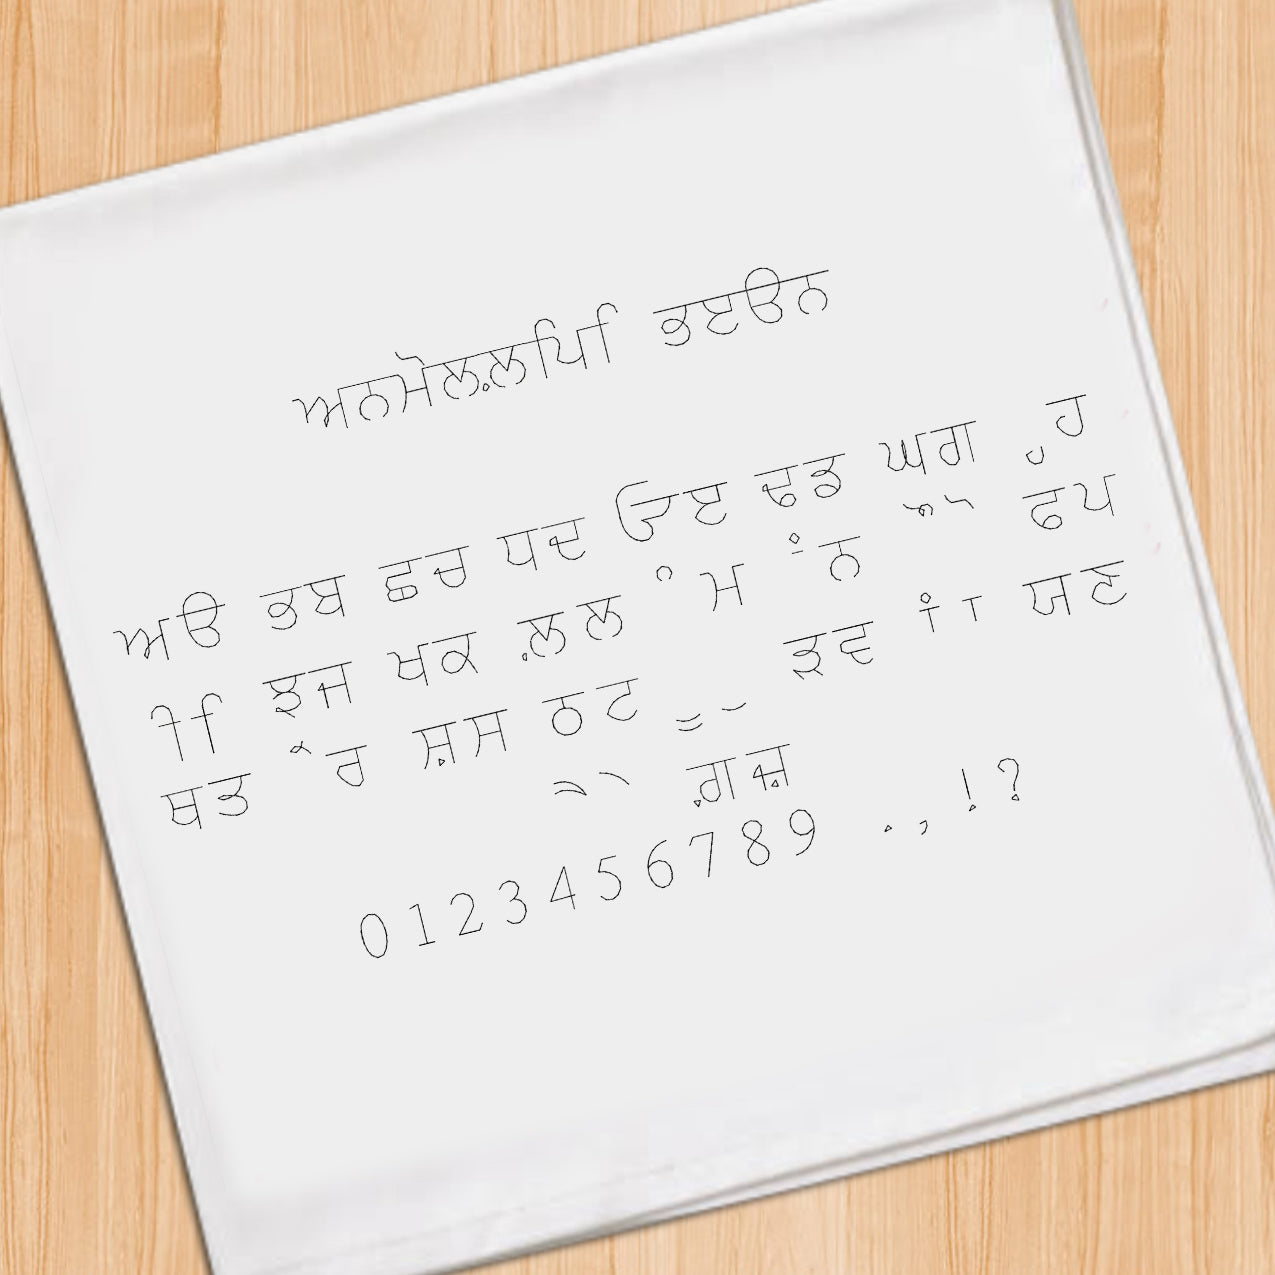 ਅਨਮੋਲਲ਼ਪਿਿ ਭਏੳਨ
ਅੳ ਭਬ ਛਚ ਧਦ ੴੲ ਢਡ ਘਗ ੍ਹ ਹ
ੀ ਿ ਝਜ ਖਕ ਲ਼ਲ ੰ ਮ ਂ ਨ ੌ ੋ ਫਪ
ਥਤ ੱ ਰ ਸ਼ਸ ਠਟ ੂ ੁ ੜਵ ਾਂ ਾ ਯਣ
ੈ ੇ ਗ਼ਜ਼
0123456789 ., !?